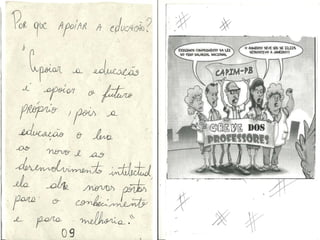 Por que apoiar a educação?
"Apoiar a educação
é apoiar o futuro
próprio, pois a
educação o leva
ao novo e ao
desenvolvimento intelectual
ela abre novas portas
para o conhecimento
e para melhoria."
09
EXIGIMOS CUMPRIMENTO DA LEI
DO PISO SALARIAL NACIONAL
O AUMENTO DEVE SER DE 22,22%
RETROATIVO A JANEIRO!!
CAPIM-PB
GREVE DOS
PROFESSORES